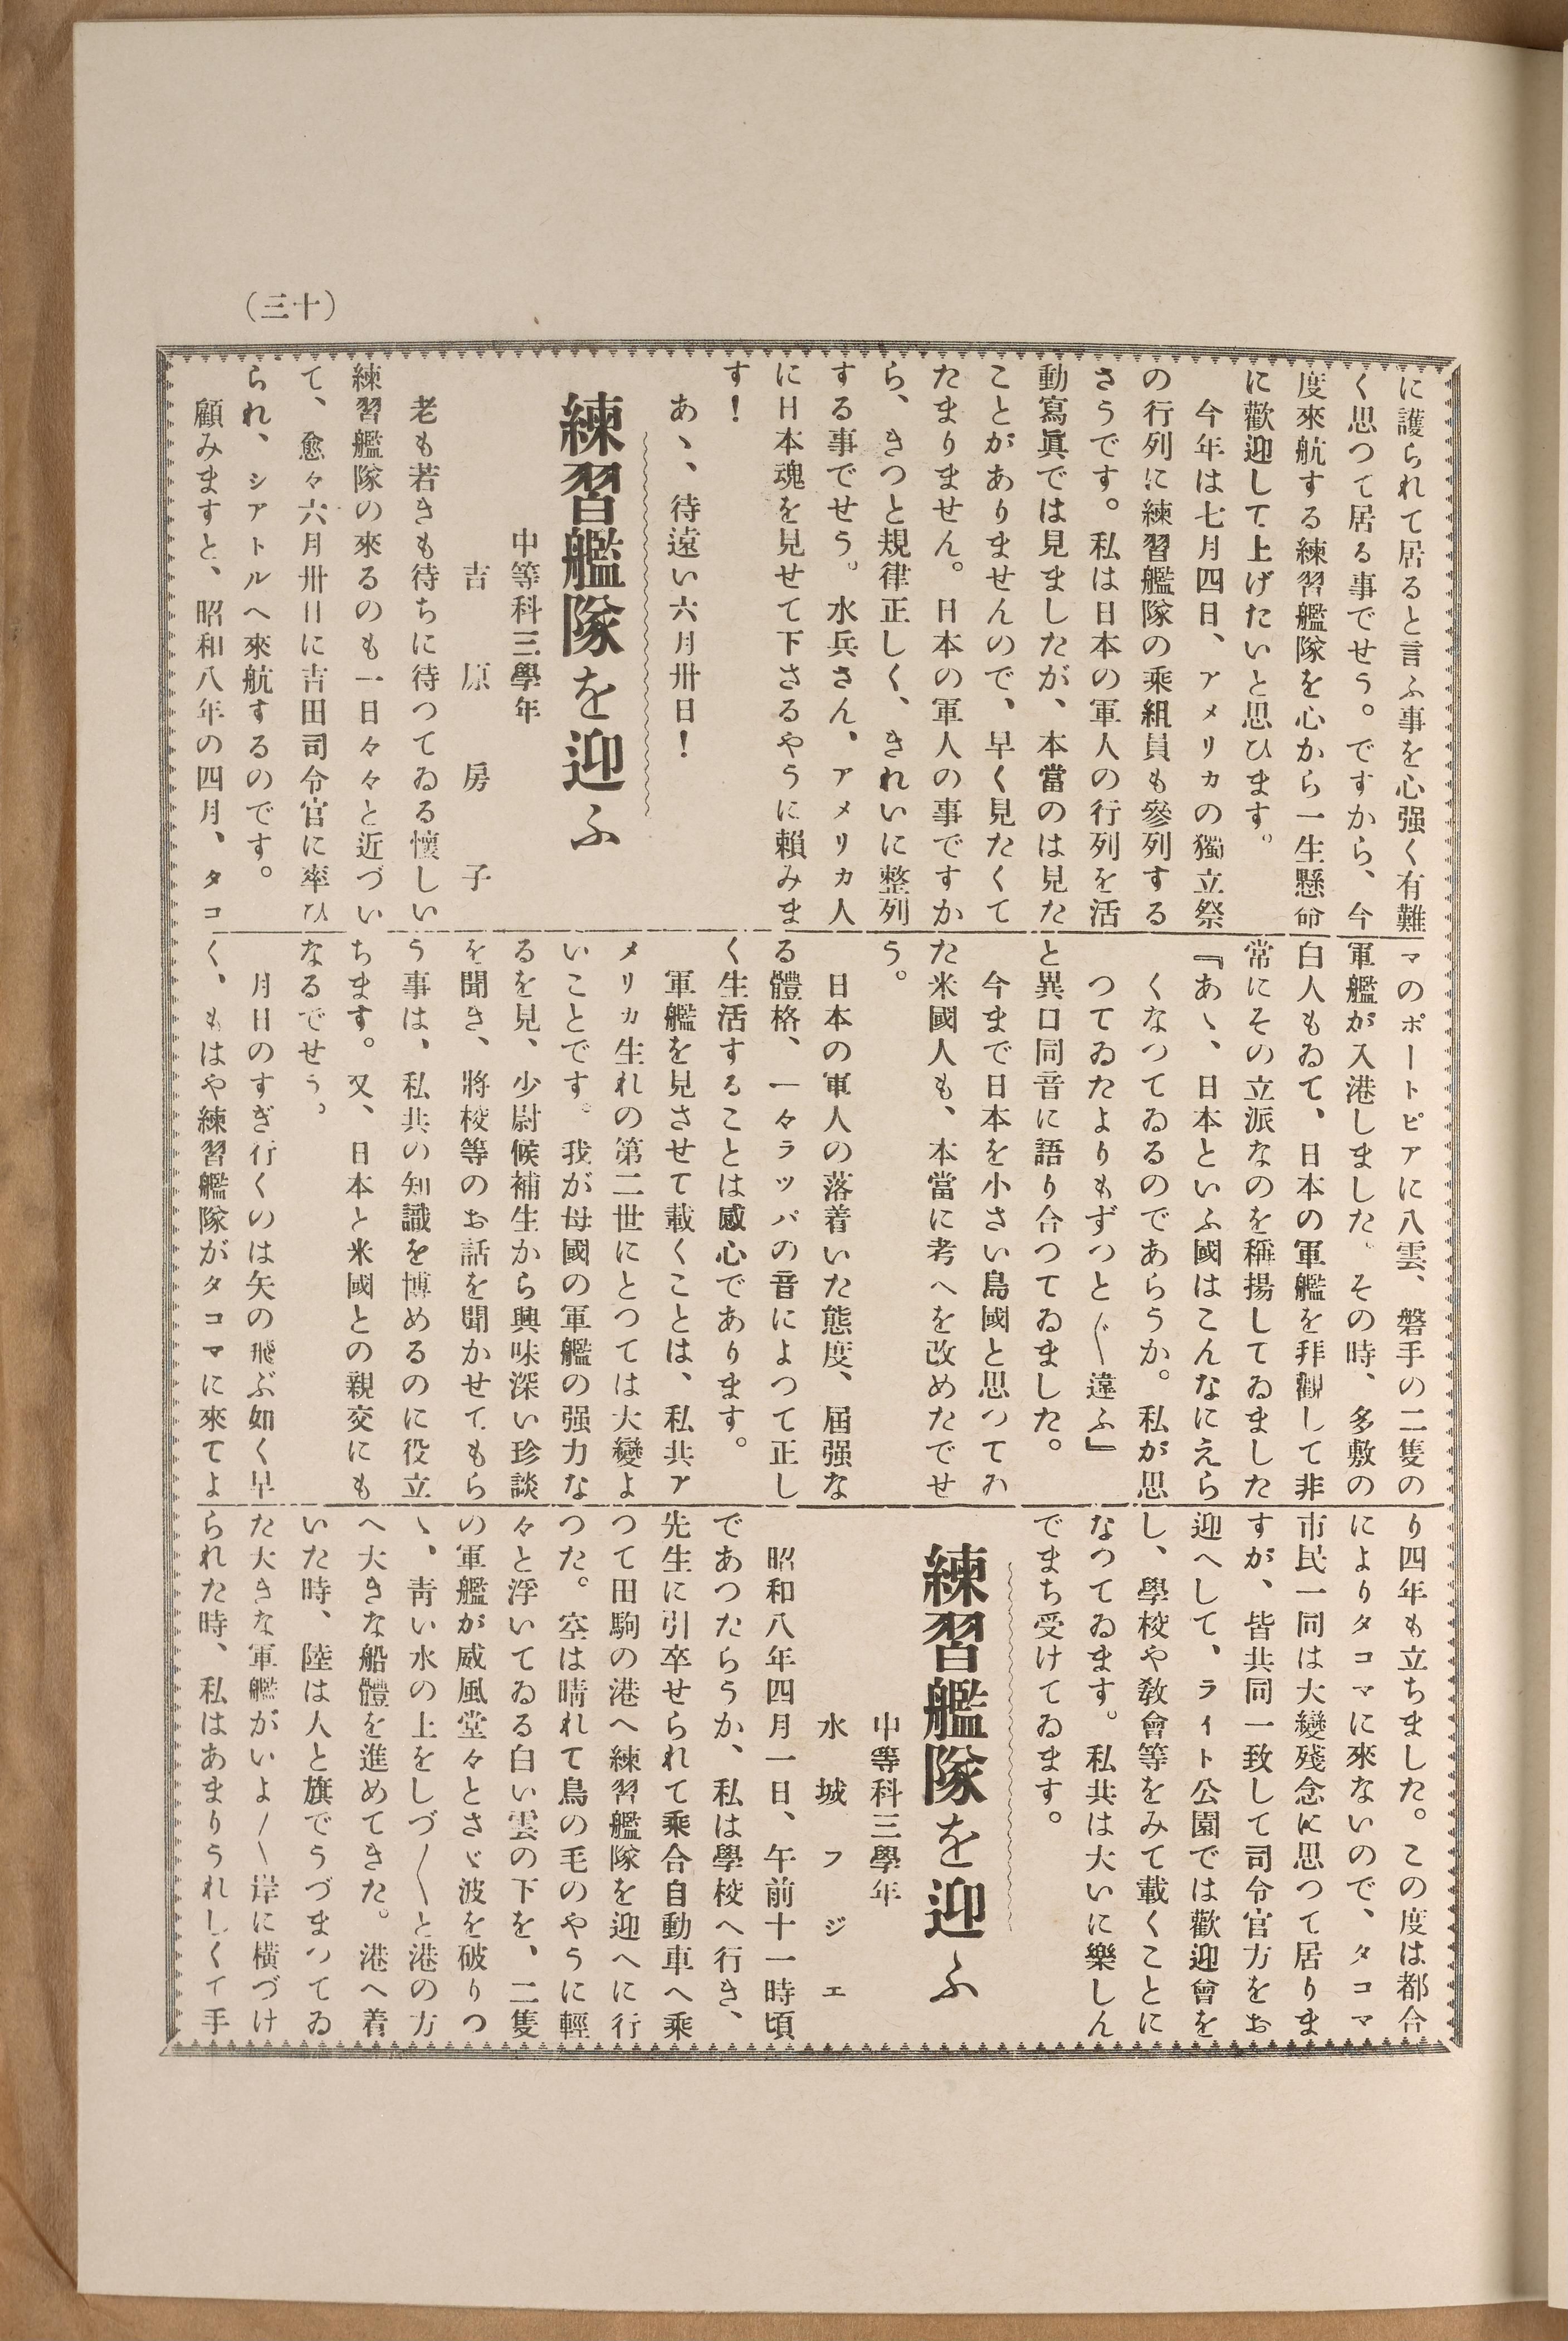 （三十）
に護られて居ると言ふ事を心强く有難
く思つて居る事でせう。ですから、今
度來航する練習艦隊を心から一生懸命
に歡迎して上げたいと思ひます。
今年は七月四日、アメリカの獨立祭
の行列に練習艦隊の乘組員も參列する
さうです。私は日本の軍人の行列を活
動寫眞では見ましたが、本當のは見た
ことがありませんので、早く見たくて
たまりません。日本の軍人の事ですか
ら、きつと規律正しく、きれいに整列
する事でせう。水兵さん、アメリカ人
に日本魂を見せて下さるやうに賴みま
す！
あゝ、待遠い六月卅日！
練習艦隊を迎ふ
中等科三學年
吉原房子
老も若きも待ちに待つてゐる懷しい
練習艦隊の來るのも一日々々と近づい
て、愈々六月卅日に吉田司令官に率ひ
られ、シアトルへ來航するのです。
顧みますと、昭和八年の四月、タコ
マのポートピアに八雲、磐手の二隻の
軍艦が入港しました。その時、多敷の
白人もゐて、日本の軍艦を拜觀して非
常にその立派なのを稱揚してゐました
『あゝ、日本といふ國はこんなにえら
くなつてゐるのであらうか。私が思
つてゐたよりもずつと〲違ふ』
と異口同音に語り合つてゐました。
今まで日本を小さい島國と思つてゐ
た米國人も、本當に考へを改めたでせ
う。
日本の軍人の落着いた態度、屆强な
る體格、一々ラッパの音によつて正し
く生活することは感心であります。
軍艦を見させて載くことは、私共ア
メリカ生れの第二世にとつては大變よ
いことです。我が母國の軍艦の强力な
るを見、少尉候補生から興味深い珍談
を聞き、將校等のお話を聞かせてもら
う事は、私共の知識を博めるのに役立
ちます。又、日本と米國との親交にも
なるでせう。
月日のすぎ行くのは矢の飛ぶ如く早
く、もはや練習艦隊がタコマに來てよ
り四年も立ちました。この度は都合
によりタコマに來ないので、タコマ
市民一同は大變殘念に思つて居りま
すが、皆共同一致して司令官方をお
迎へして、ライト公園では歡迎會を
し、學校や敎會等をみて載くことに
なつてゐます。私共は大いに樂しん
でまち受けてゐます。
練習艦隊を迎ふ
中等科三學年
水城フジエ
昭和八年四月一日、午前十一時頃
であつたらうか、私は學校へ行き、
先生に引卒せられて乘合自動車へ乘
つて田駒の港へ練習艦隊を迎へに行
つた。空は晴れて鳥の毛のやうに輕
々と浮いてゐる白い雲の下を、二隻
の軍艦が威風堂々とさゞ波を破りつ
ゝ、靑い水の上をしづ〳〵と港の方
へ大きな船體を進めてきた。港へ着
いた時、陸は人と旗でうづまつてゐ
た大きな軍艦がいよ〳〵岸に橫づけ
られた時、私はあまりうれしくて手